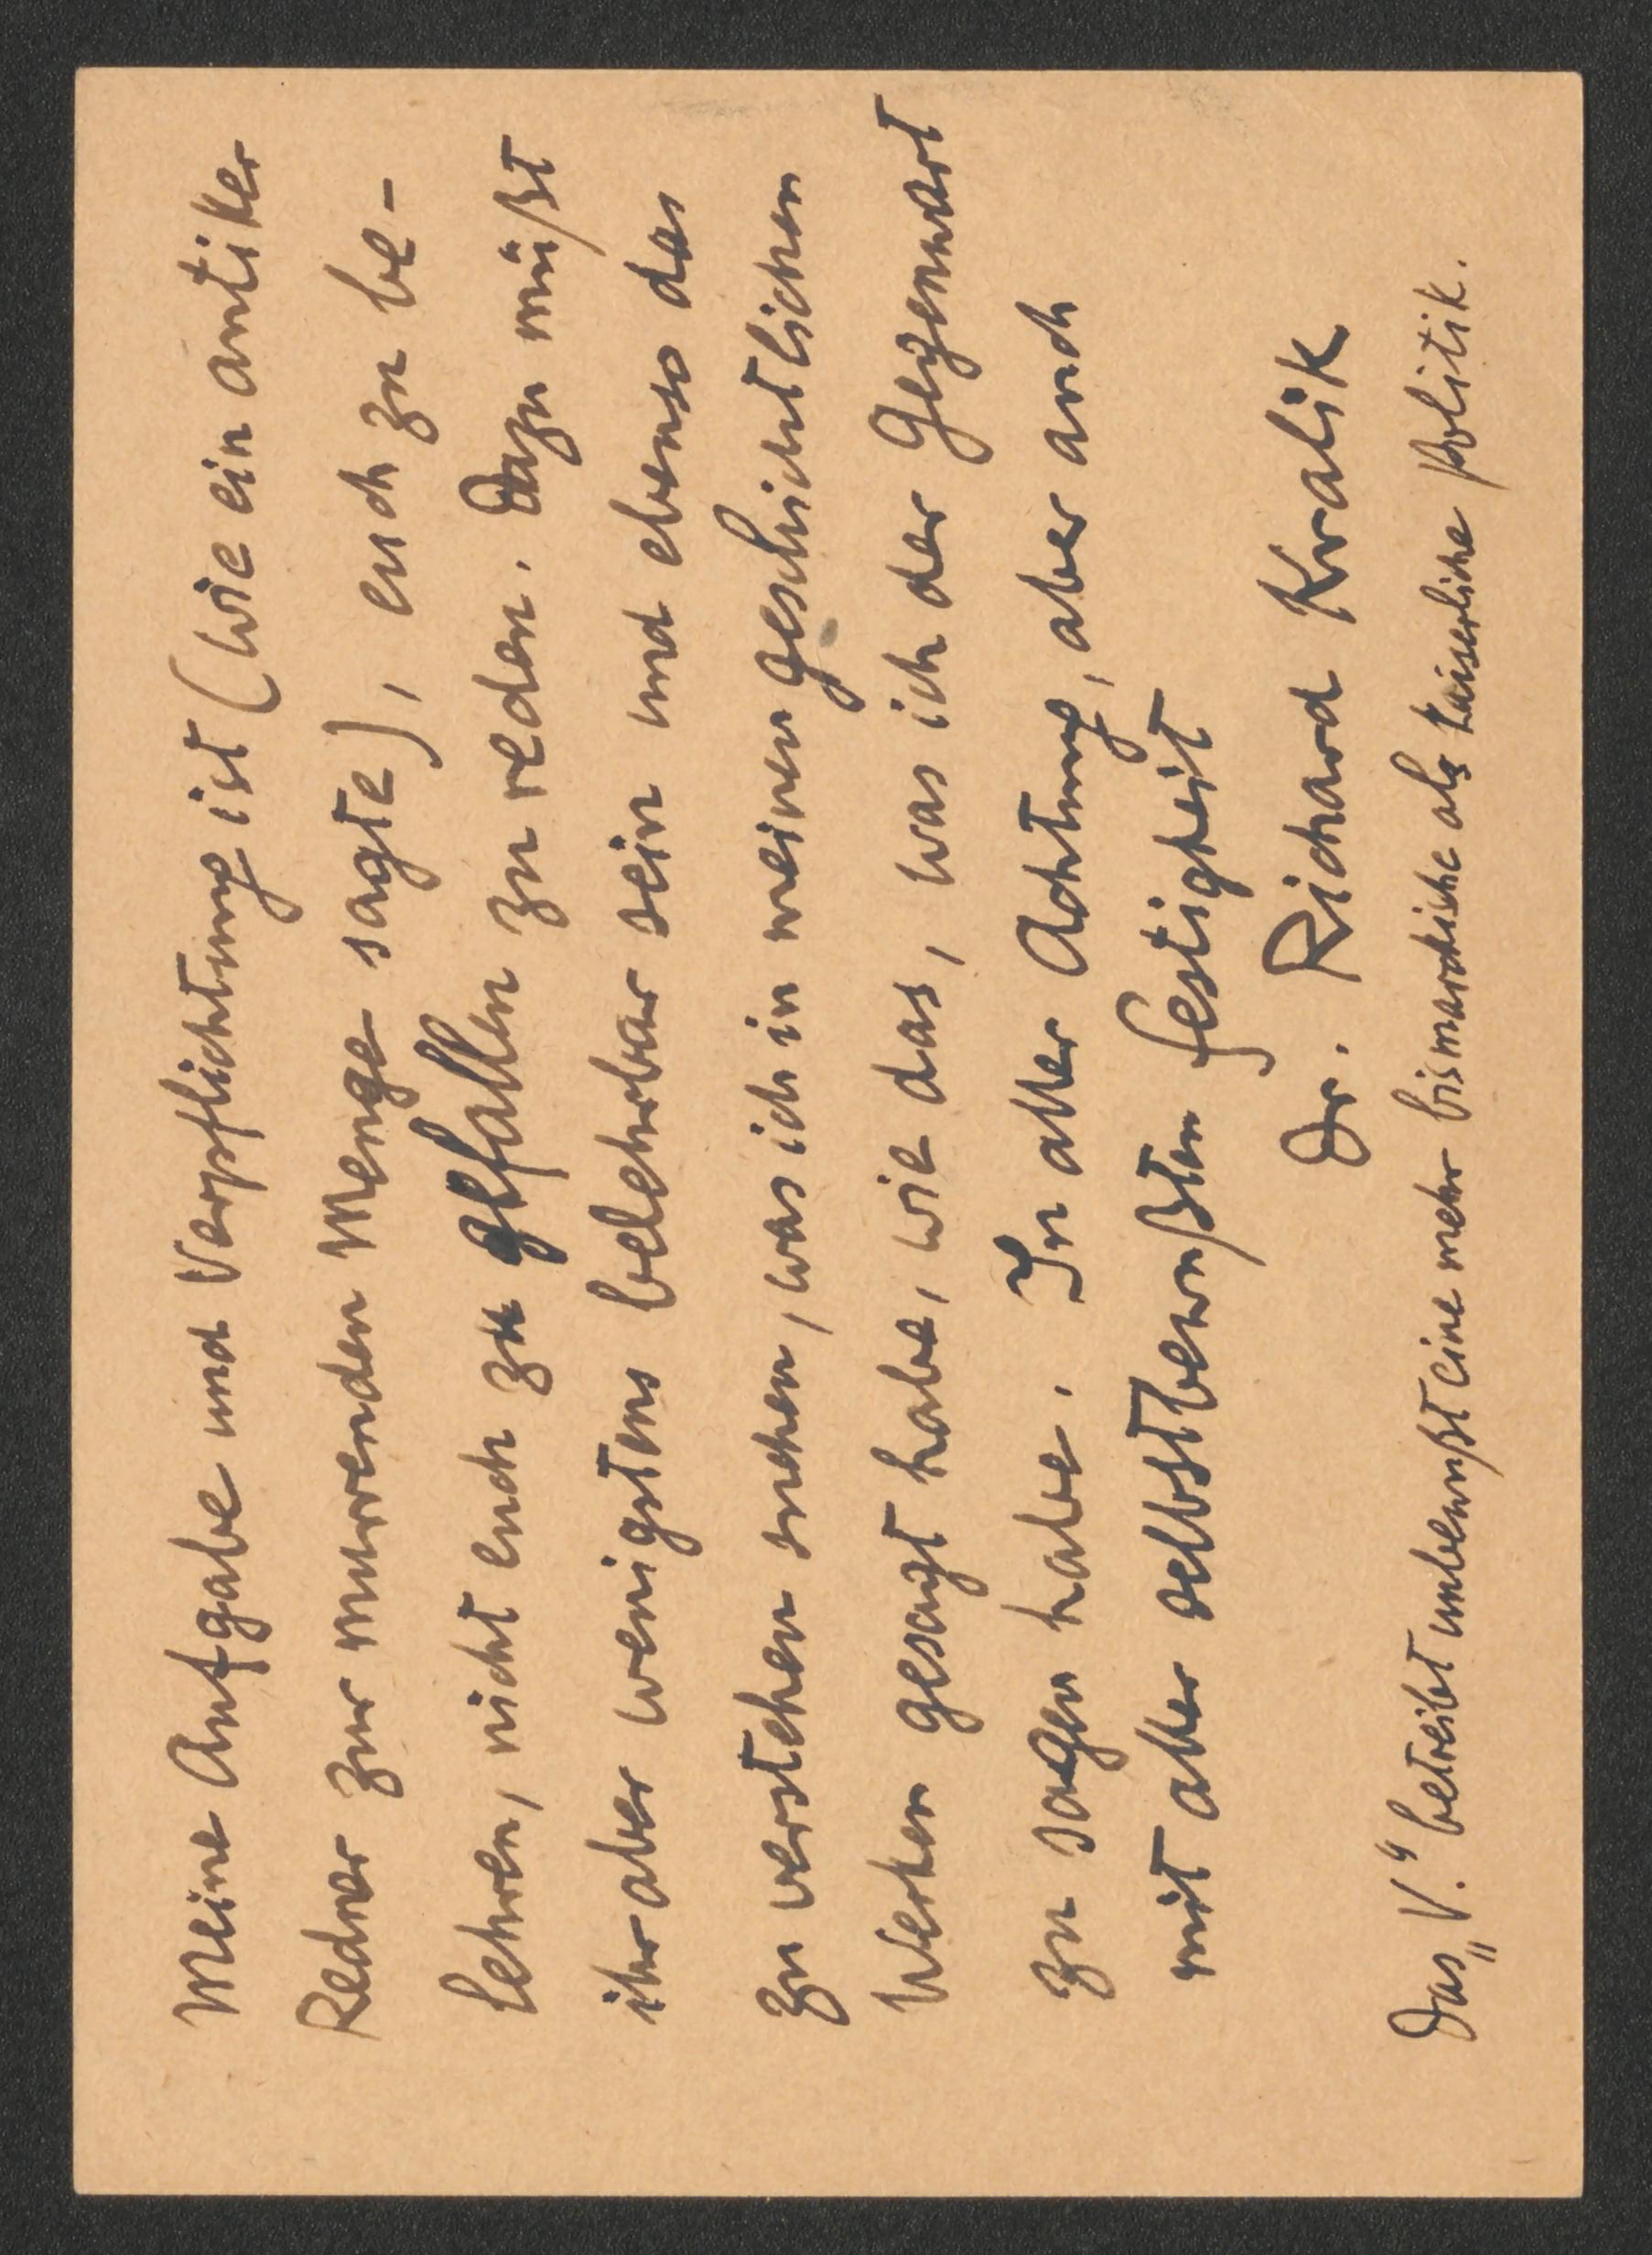 Meine Aufgabe und Verpflichtung ist (wie ein antiker
Redner zur murrenden Menge sagte), euch zu be-
lehren, nicht euch zu gefallen zu reden. Dazu müßt
ihr aber wenigstens belehrbar sein und ebenso das
zu verstehen suchen, was ich in meinen geschichtlichen
Werken gesagt habe, wie das, was ich der Gegenwart
zu sagen habe. In aller Achtung, aber auch
mit aller selbstbewußten Festigkeit
Dr. Richard Kralik
Das „V.“ betreibt unbewußt eine mehr bismarckische als kaiserliche Politik.